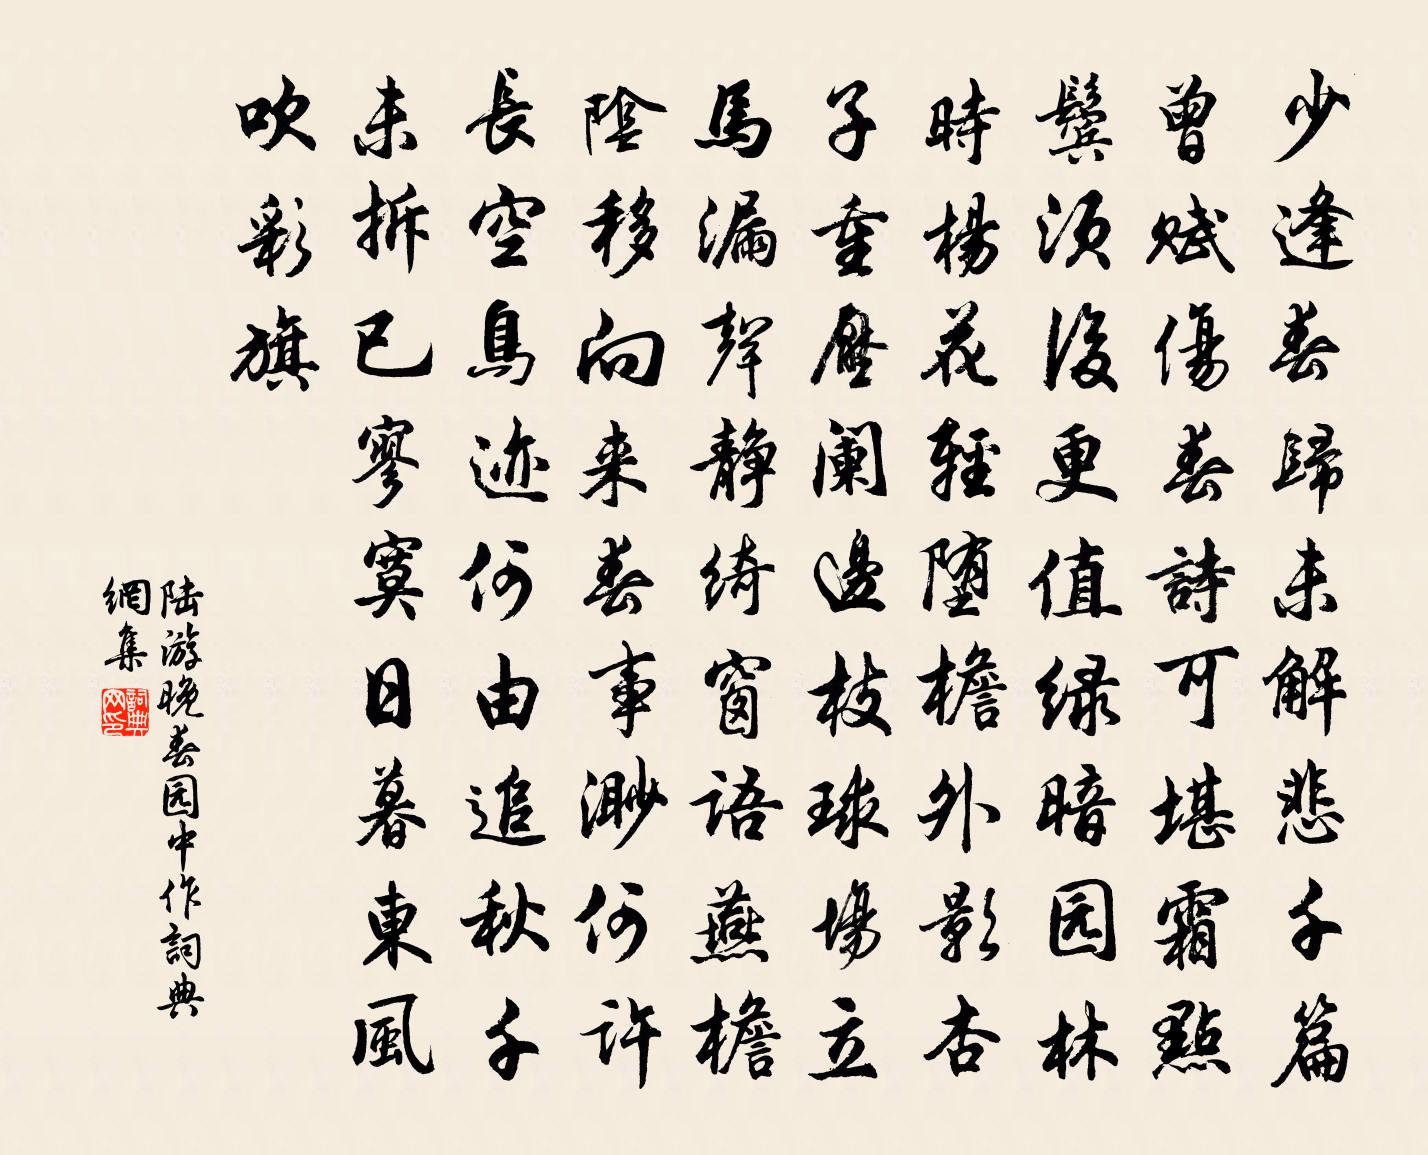 少逢春歸未解悲千篇
曾賦傷春詩可堪霜點
鬓須後更值绿暗园林
時楊花輕堕檐外影杏
子重壓阑邊枝球場立
馬漏聲静绮窗語燕檐
陰移向来春事渺何許
長空鳥迹何由追秋千
未拆已寥寞日暮東風
吹彩旗
陆游晚春园中作詞典
網集
詞典网印